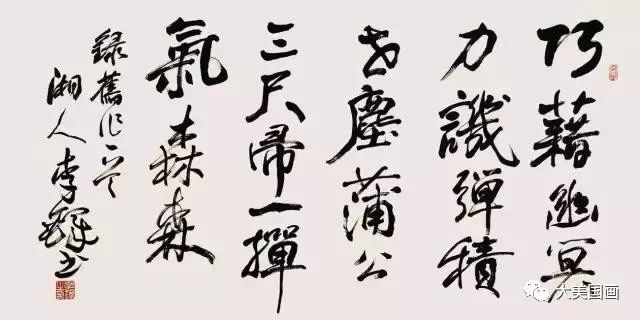 巧藉幽冥
力譏彈積
世塵蒲公
三尺帚一撣
氣森森
錄舊作一首
湘人李鐸书
大美国画